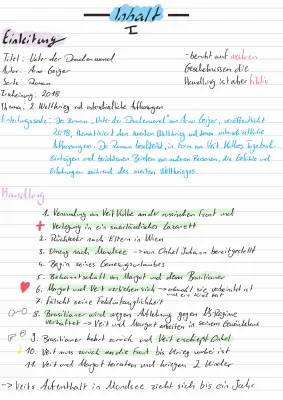 Inhalt
I
Einleitung
Titel: Unter der Drachenwand
Autor: Arno Geiger
Sorte: Roman
Erscheinung: 2018
Thema: 2. Weltkrieg und unterschiedliche Auffassungen
- beruht auf wahren
Geschehnissen die
Handlung ist aber fiktiv
Einleitungssatz: Der Roman „Unter der Drachenwand" von Arno Geiger, veröffentlicht
2018, thematisiert den zweiten Weltkrieg und dessen unterschiedliche
Auffassungen. Der Roman beschreibt, in Form von Veit Kolbes Tagebuch-
einträgen und Briefen von anderen Personen, die Gefühle und
Erfahrungen während des zweiten Weltkrieges.
Handlung
1. Verwundung an Veit Kolbe an der russischen Front und
Verlegung in ein saarländisches Lazarett
2. Rückkehr nach Eltern in Wien
3. Umzug nach Mondsee → von Onkel Johann bereitgestellt
4. Beginn seines Genesungsurlaubes
5. Bekanntschaft mit Margot und dem Brasilianer
6. Margot und Veit verlieben sich → obwohl sie verheiratet ist
und ein Kind hat
7. Fälscht seine Felddiensttauglichkeit
8. Brasilianer wird wegen Ablehnung gegen NS-Regime
verhaftet → Veit und Margot arbeiten in seinem Gewächshaus
9. Brasilianer kehrt zurück und Veit erschießt Onkel
10. Veit muss zurück an die Front bis Krieg vorbei ist
11. Veit und Margot heiraten und kriegen 2 Kinder
→ Veits Aufenthalt in Mondsee zieht sich bis ein Jahr